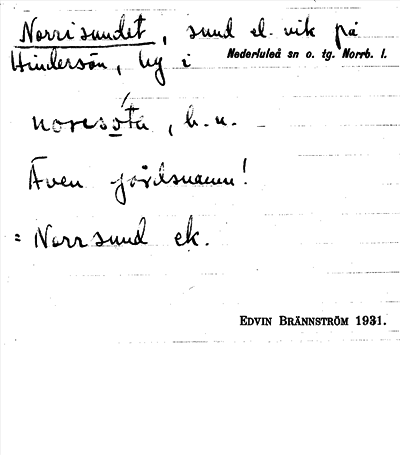 Norrisundet, sund el. vik på
Hindersön, by i Nederluleå sn o. tg. Norrb. l.
h. n.
Även jordsnamn!
= Norrsund ek.
EDVIN BRÄNNSTRÖM 1931.